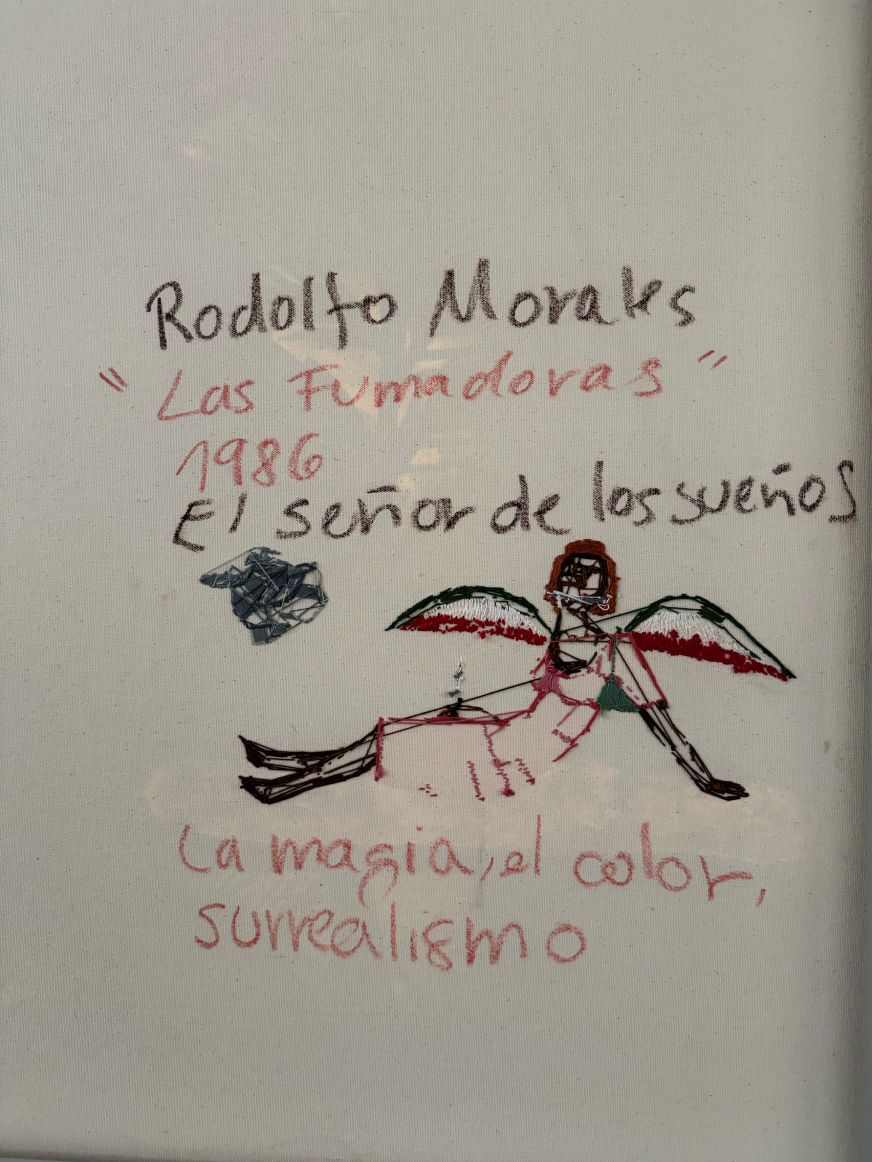 Rodolfo Morales
"Las Fumadoras"
1986
El señor de los sueños
La magia, el color,
surrealismo